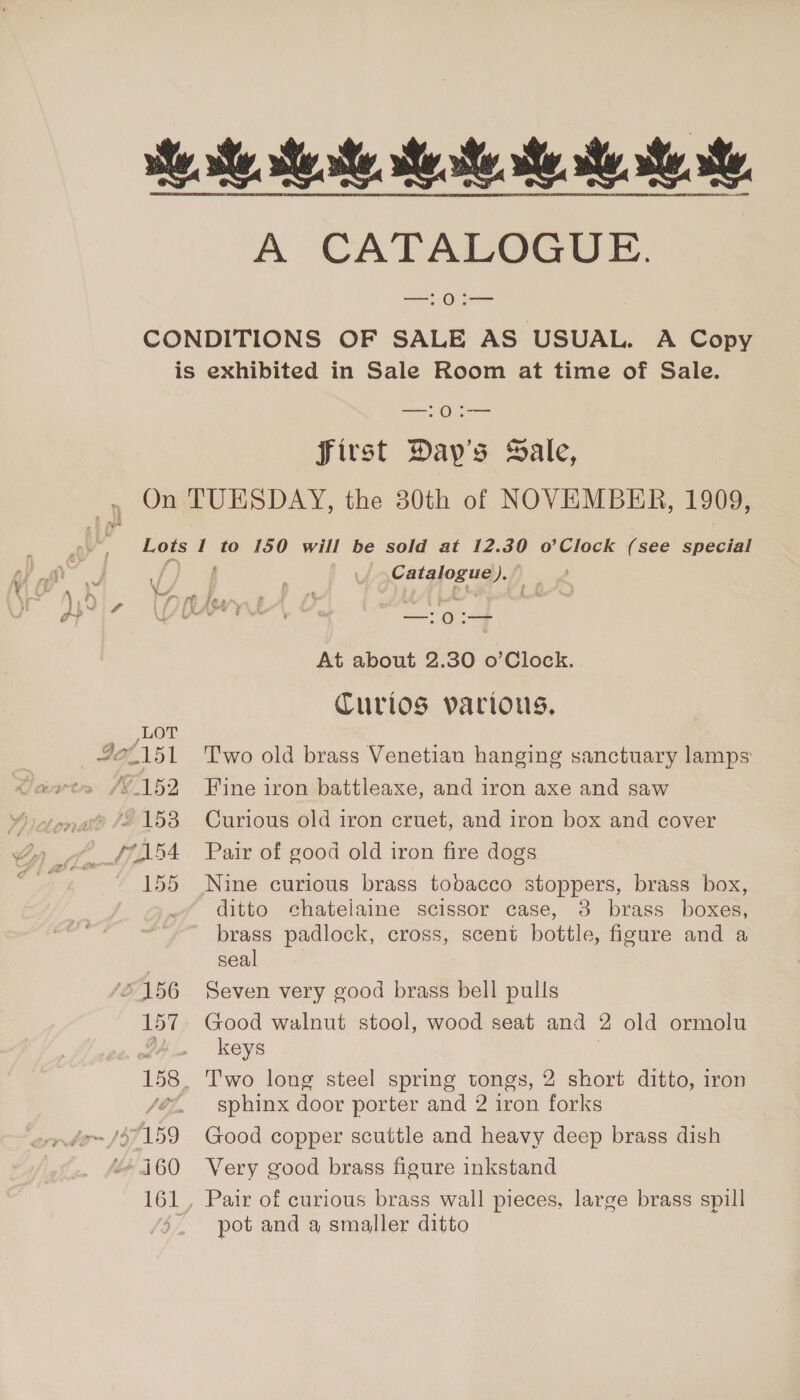 A CATALOGUE.
—: O :—
CONDITIONS OF SALE AS USUAL. A Copy
is exhibited in Sale Room at time of Sale.
—: O :—
First Day's Sale,
On TUESDAY, the 30th of NOVEMBER, 1909,
Lots 1 to 150 will be sold at 12.30 o'Clock (see special
Catalogue).
—: O :—
At about 2.30 o'Clock.
Curios various.
LOT
151 Two old brass Venetian hanging sanctuary lamps
152 Fine iron battleaxe, and iron axe and saw
153 Curious old iron cruet, and iron box and cover
154 Pair of good old iron fire dogs
155 Nine curious brass tobacco stoppers, brass box,
ditto chatelaine scissor case, 3 brass boxes,
brass padlock, cross, scent bottle, figure and a
seal
156 Seven very good brass bell pulls
157 Good walnut stool, wood seat and 2 old ormolu
keys
158 Two long steel spring tongs, 2 short ditto, iron
sphinx door porter and 2 iron forks
159 Good copper scuttle and heavy deep brass dish
160 Very good brass figure inkstand
161 Pair of curious brass wall pieces, large brass spill
pot and a smaller ditto